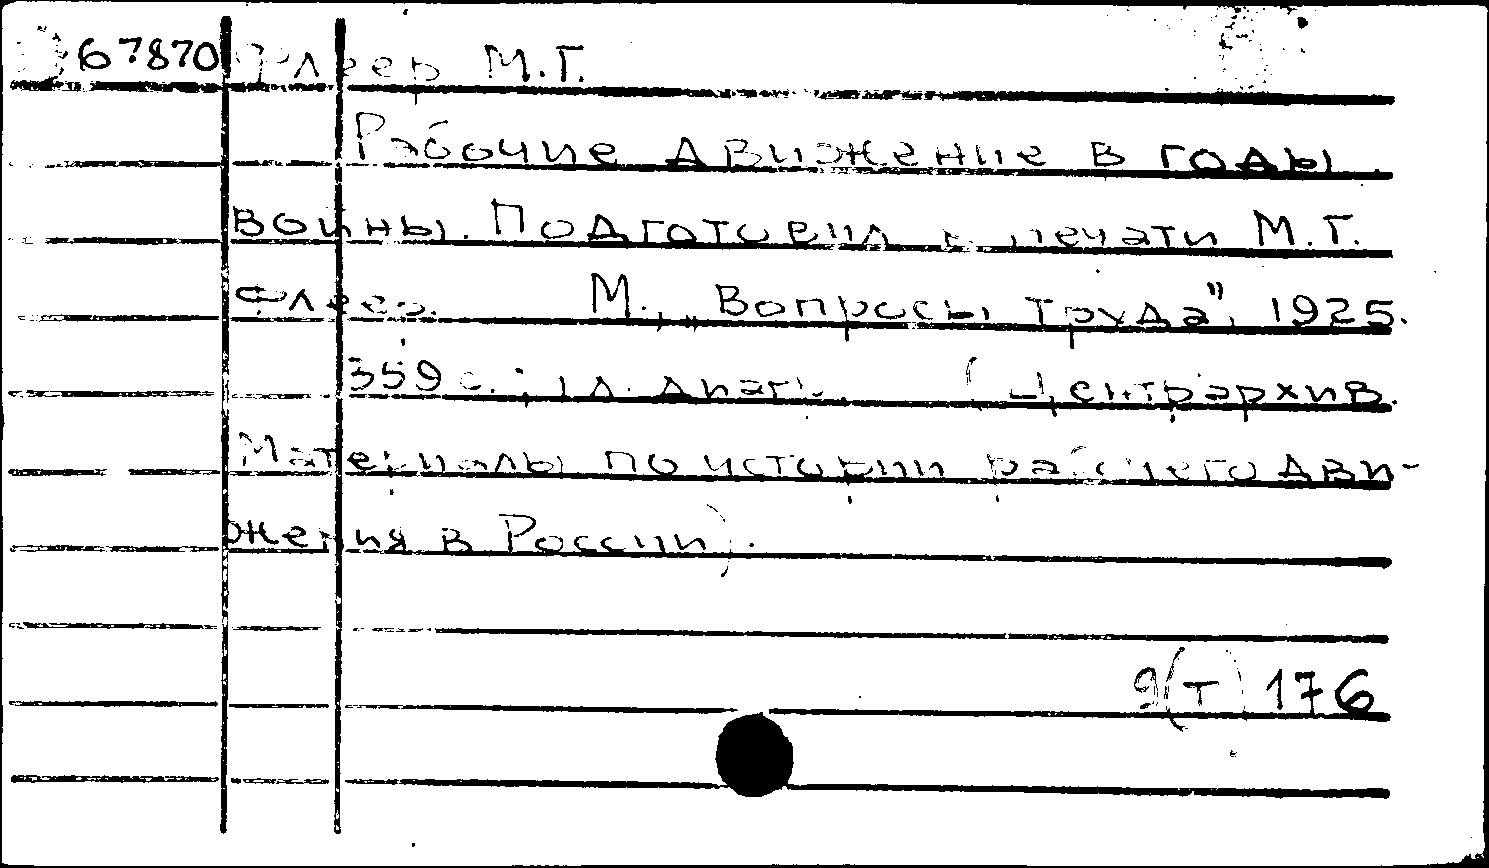 67870 Флеер М.Г.
Рабочие движение в годы
войны. Подготовил к печати М.Г.
Флеер. М., „Вопросы труда", 1925.
359 с.; 1 л. диагр. (Центрархив.
Материалы по истории рабочего дви-
жения в России).
9(т) 176